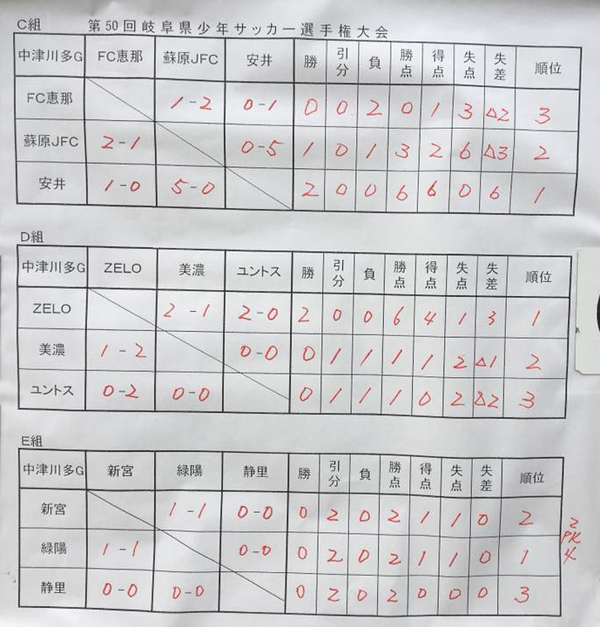 C組 第50回岐阜県少年サッカー選手権大会
中津川多G FC恵那 蘇原JFC 安井 勝 引分 負 勝点 得点 失点 失差 順位
FC恵那 1-2 0-1 0 0 2 0 1 3 △2 3
蘇原JFC 2-1 0-5 1 0 1 3 2 6 △3 2
安井 1-0 5-0 2 0 0 6 6 0 6 1
D組
中津川多G ZELO 美濃 ユントス 勝 引分 負 勝点 得点 失点 失差 順位
ZELO 2-1 2-0 2 0 0 6 4 1 3 1
美濃 1-2 0-0 0 1 1 1 1 2 △1 2
ユントス 0-2 0-0 0 1 1 1 0 2 △2 3
E組
中津川多G 新宮 緑陽 静里 勝 引分 負 勝点 得点 失点 失差 順位
新宮 1-1 0-0 0 2 0 2 1 1 0 2 2
PK
緑陽 1-1 0-0 0 2 0 2 1 1 0 1 4
静里 0-0 0-0 0 2 0 2 0 0 0 3